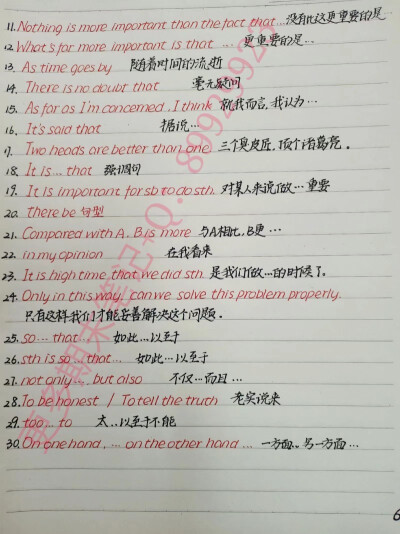 11. Nothing is more important than the fact that... 没有比这更重要的是
12. What's far more important is that ... 更重要的是...
13. As time goes by 随着时间的流逝
14. There is no doubt that 毫无疑问
15. As far as I'm concerned, I think 就我而言,我认为...
16. It's said that 据说...
17. Two heads are better than one 三个臭皮匠,顶个诸葛亮。
18. It is... that 强调句
19. It is important for sb to do sth. 对某人来说做...重要
20. there be 句型
21. Compared with A, B is more 与A相比,B更...
22. in my opinion 在我看来
23. It is high time that we did sth. 是我们做...的时候了。
24. Only in this way, can we solve this problem properly.
只有这样我们才能妥善解决这个问题。
25. so... that... 如此...以至于
26. sth is so ... that... 如此...以至于
27. not only ... but also 不仅...而且...
28. To be honest / To tell the truth 老实说来
29. too... to 太...以至于不能
30. On one hand, ... on the other hand ... 一方面...另一方面...
6